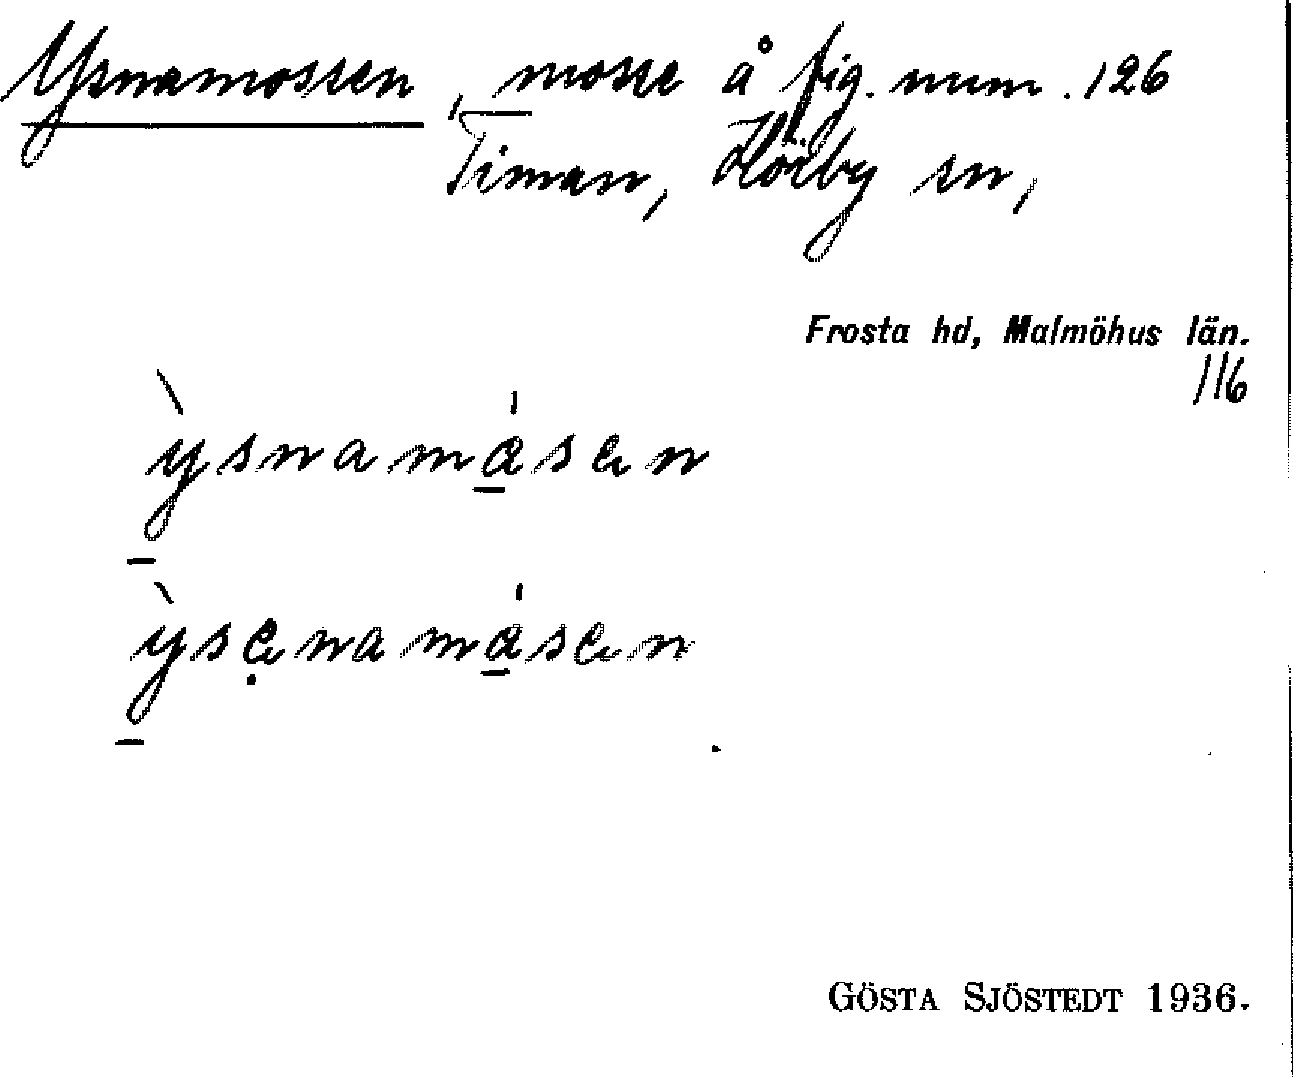 Ysnamossen, mosse å fig. num. 126
Timan, Hörby sn,
Frosta hd, Malmöhus län.
116
ỳsnama̱sen
ỳsẹnama̱sen
GÖSTA SJÖSTEDT 1936.